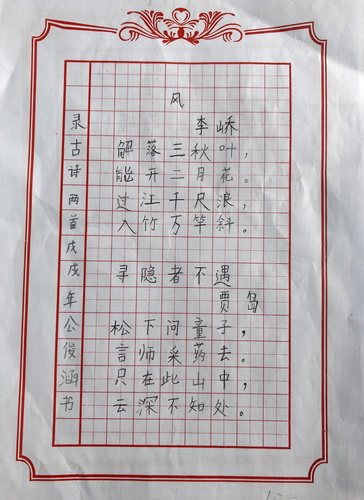 风
李峤
解落三秋叶，
能开二月花。
过江千尺浪，
入竹万竿斜。
寻隐者不遇
贾岛
松下问童子，
言师采药去。
只在此山中，
云深不知处。
录古诗两首戊戌年公俊涵书